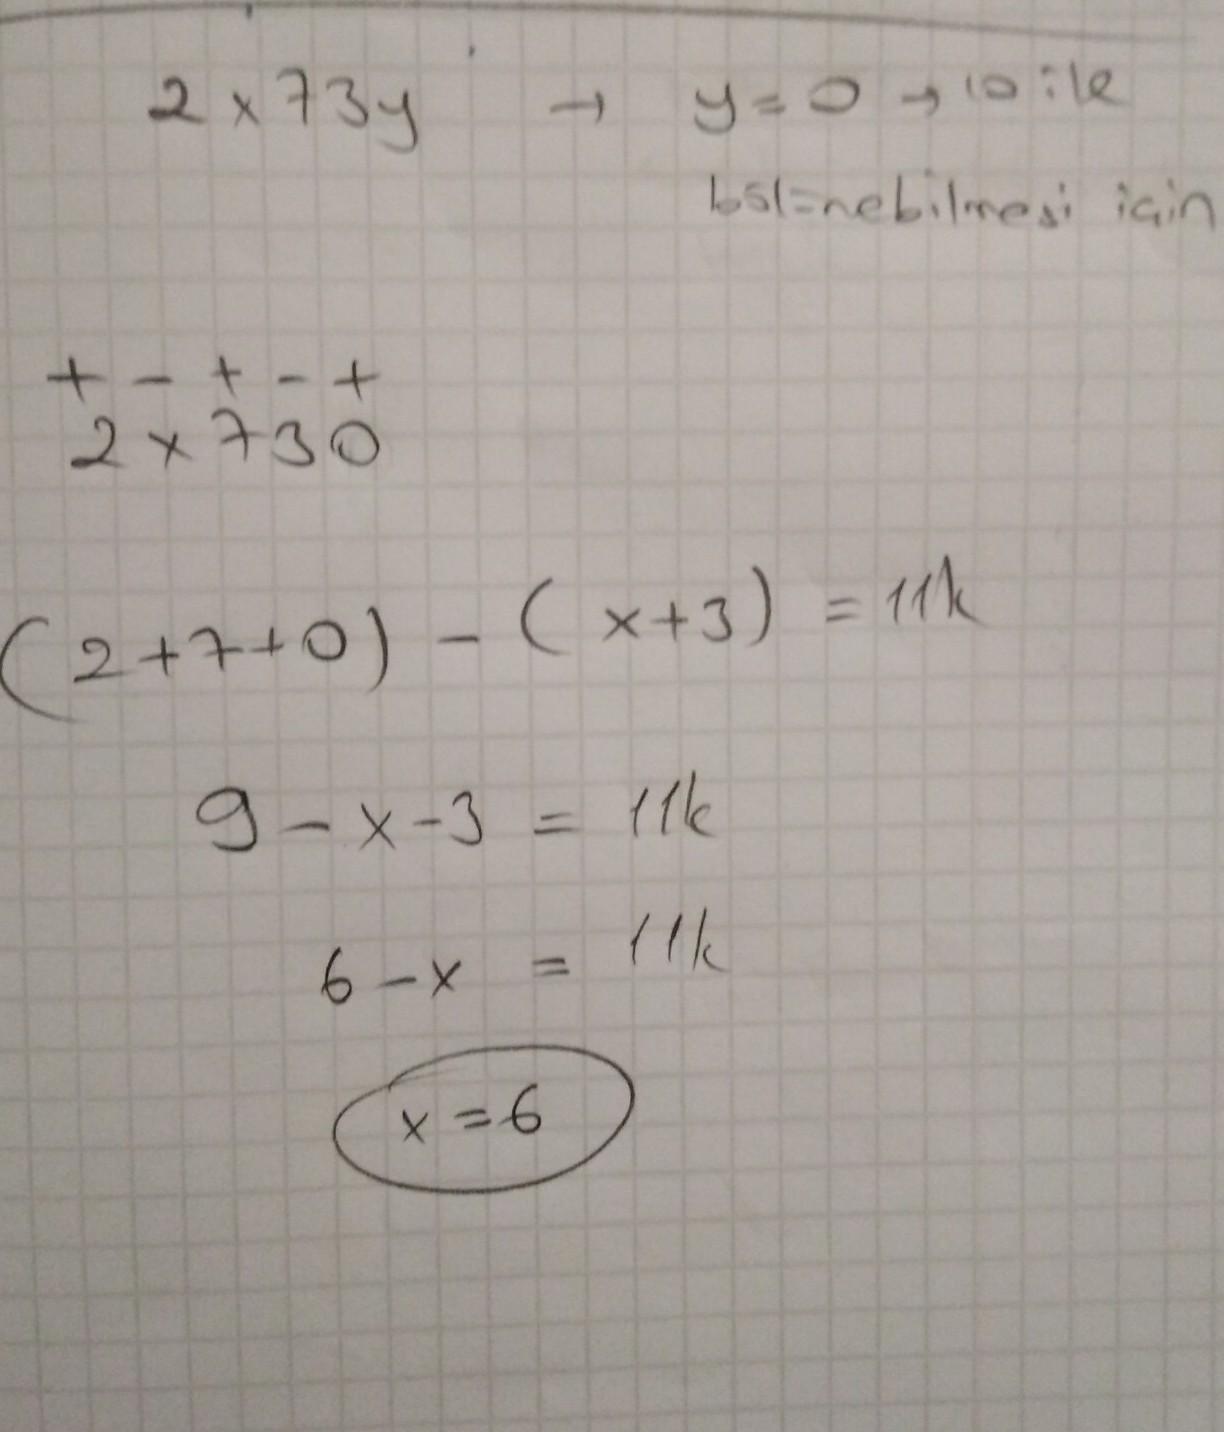 2x73y → y=0 → 10 ile
bölünebilmesi için
+ - + - +
2x730
(2+7+0) - (x+3) = 11k
9-x-3 = 11k
6-x = 11k
x=6